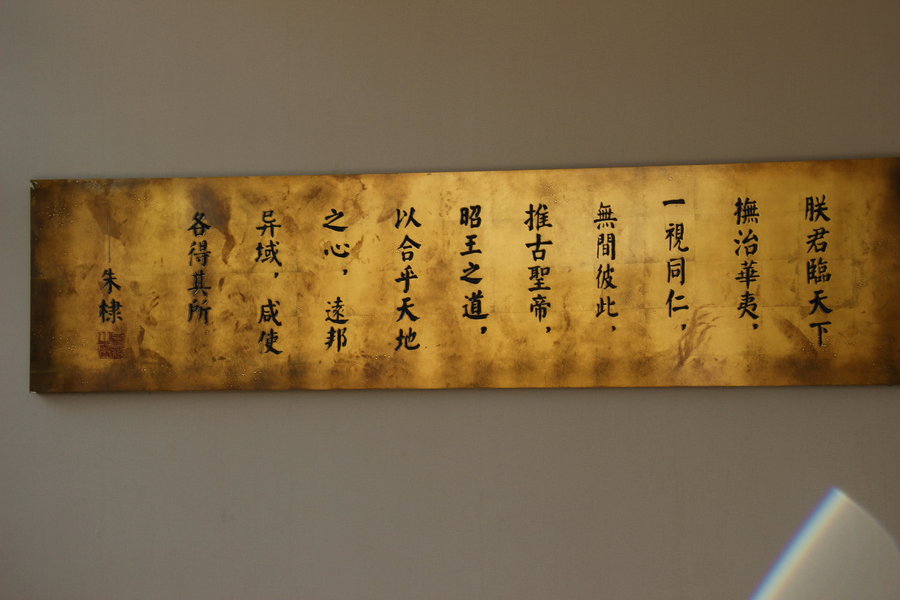 朕君臨天下
撫治華夷，
一視同仁，
無間彼此，
推古聖帝，
昭王之道，
以合乎天地
之心，遠邦
异域，咸使
各得其所
朱棣